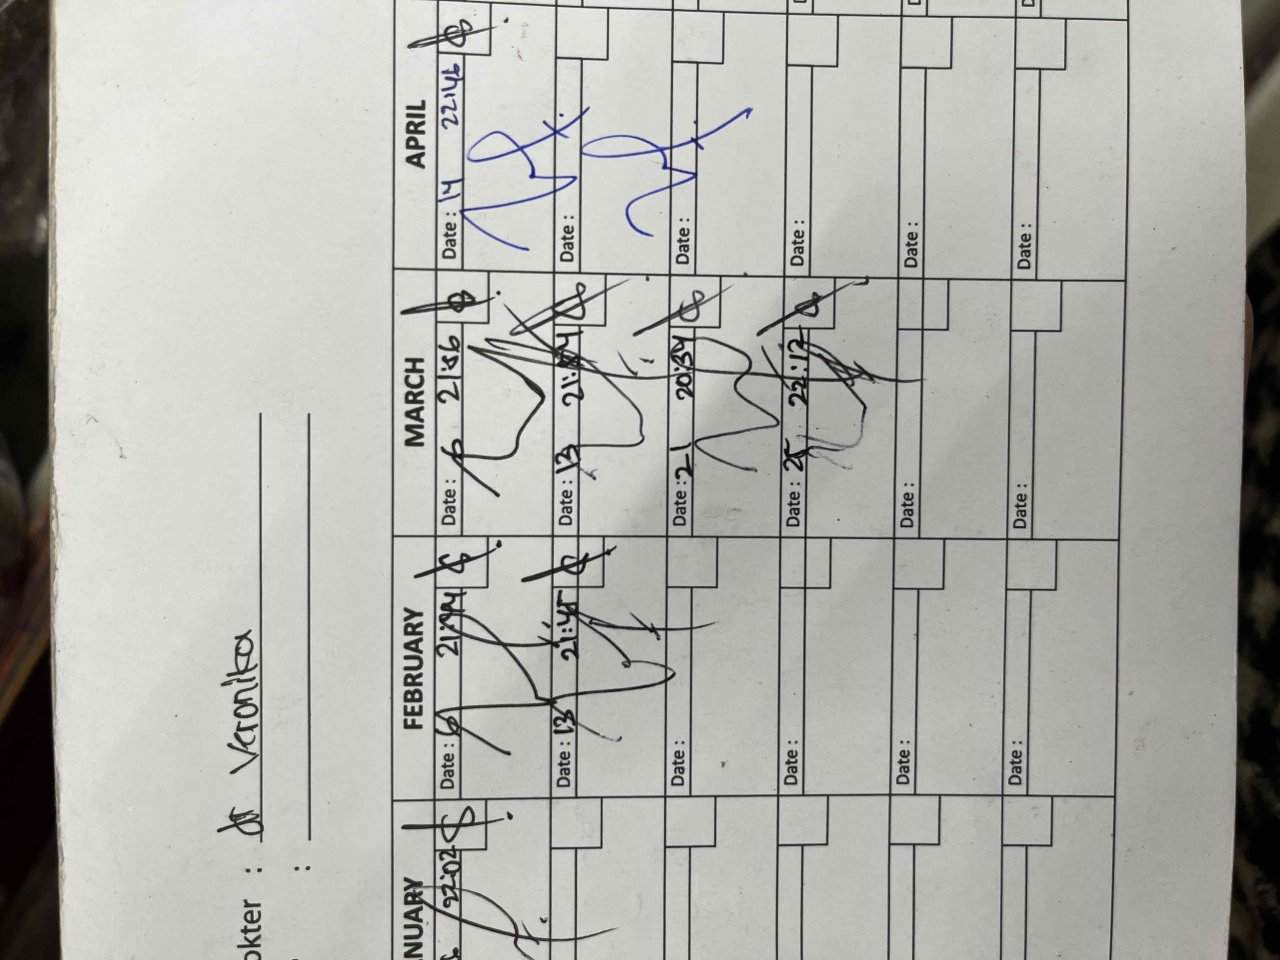 okter : dr Veronika
:
NUARY FEBRUARY MARCH APRIL
22:02 Date : 6 21:44 Date : 6 21:56 Date : 14 22:46
Date : 13 21:45 Date : 13 21: Date :
Date : Date : 21 20:34 Date :
Date : Date : 25 22:12 Date :
Date : Date : Date :
Date : Date : Date :